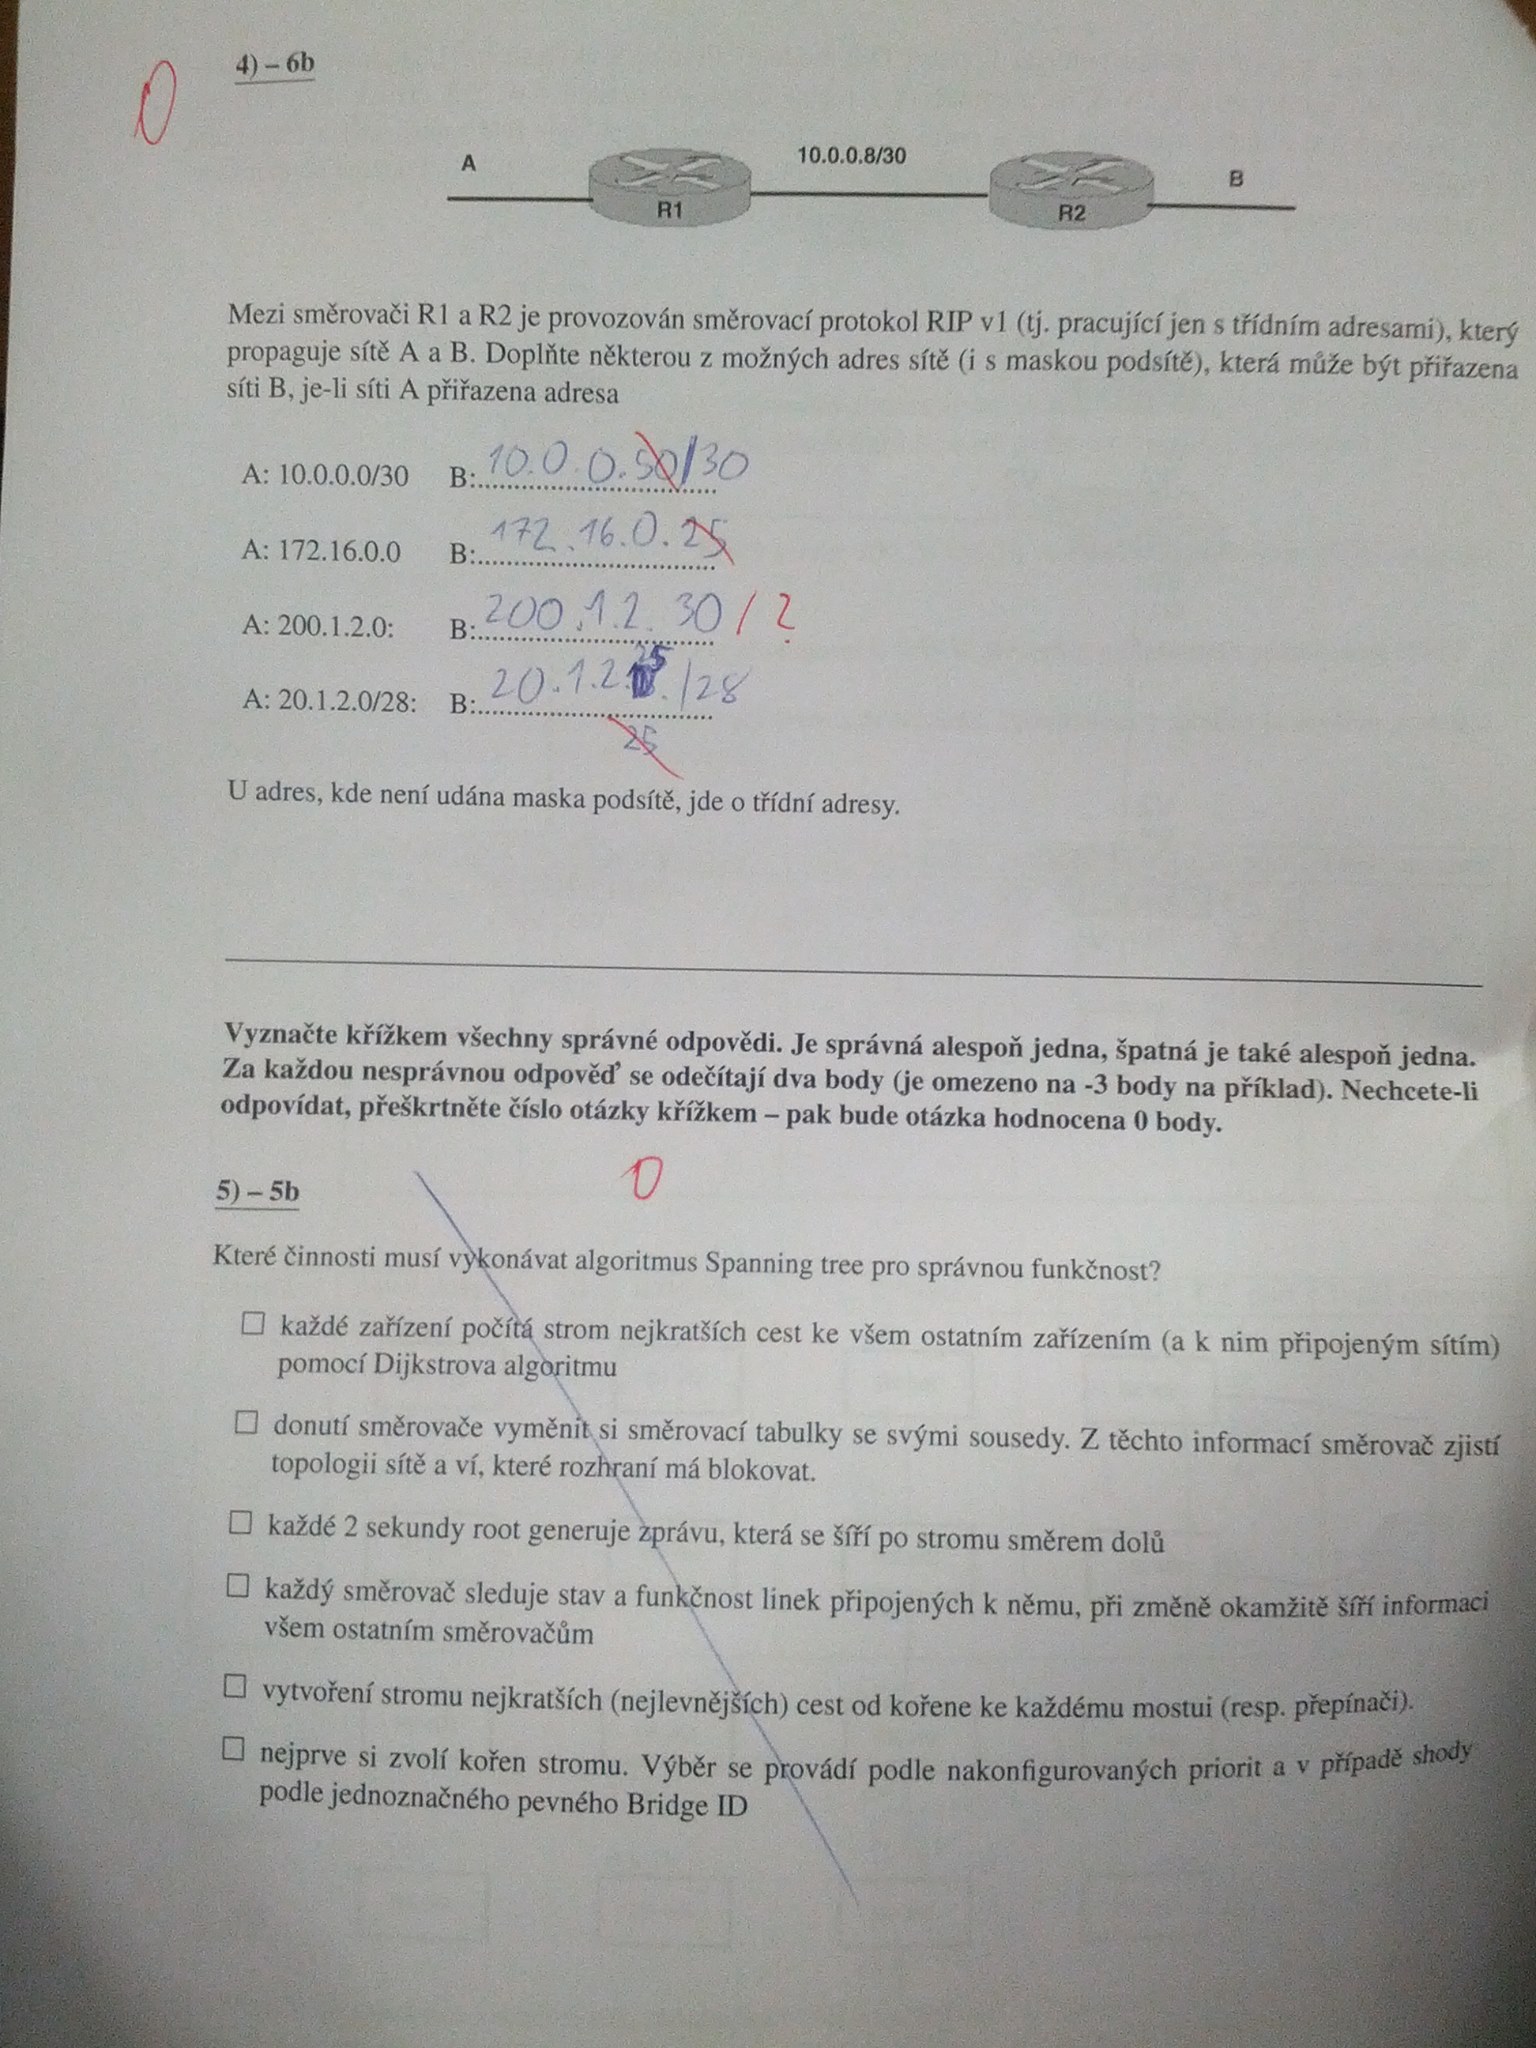 0
4) – 6b
A
10.0.0.8/30
B
R1
R2
Mezi směrovači R1 a R2 je provozován směrovací protokol RIP v1 (tj. pracující jen s třídním adresami), který
propaguje sítě A a B. Doplňte některou z možných adres sítě (i s maskou podsítě), která může být přiřazena
síti B, je-li síti A přiřazena adresa
A: 10.0.0.0/30 B: 10.0.0.50/30
A: 172.16.0.0 B: 172.16.0.25
A: 200.1.2.0: B: 200.1.2.30 / ?
A: 20.1.2.0/28: B: 20.1.2.25/28
25
U adres, kde není udána maska podsítě, jde o třídní adresy.
Vyznačte křížkem všechny správné odpovědi. Je správná alespoň jedna, špatná je také alespoň jedna.
Za každou nesprávnou odpověď se odečítají dva body (je omezeno na -3 body na příklad). Nechcete-li
odpovídat, přeškrtněte číslo otázky křížkem – pak bude otázka hodnocena 0 body.
0
5) – 5b
Které činnosti musí vykonávat algoritmus Spanning tree pro správnou funkčnost?
každé zařízení počítá strom nejkratších cest ke všem ostatním zařízením (a k nim připojeným sítím)
pomocí Dijkstrova algoritmu
donutí směrovače vyměnit si směrovací tabulky se svými sousedy. Z těchto informací směrovač zjistí
topologii sítě a ví, které rozhraní má blokovat.
každé 2 sekundy root generuje zprávu, která se šíří po stromu směrem dolů
každý směrovač sleduje stav a funkčnost linek připojených k němu, při změně okamžitě šíří informaci
všem ostatním směrovačům
vytvoření stromu nejkratších (nejlevnějších) cest od kořene ke každému mostui (resp. přepínači).
nejprve si zvolí kořen stromu. Výběr se provádí podle nakonfigurovaných priorit a v případě shody
podle jednoznačného pevného Bridge ID